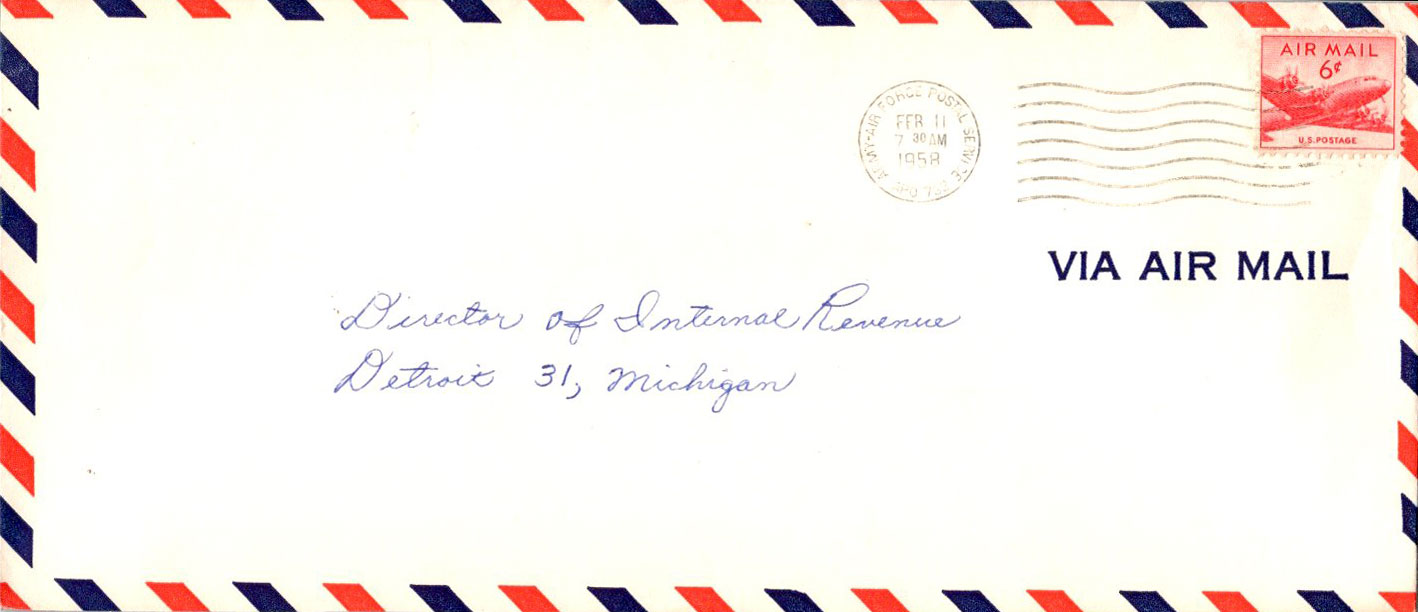 AIR MAIL
6¢
U.S. POSTAGE
ARMY-AIR FORCE POSTAL SERVICE
FEB 11
7 30 AM
1958
APO
VIA AIR MAIL
Director of Internal Revenue
Detroit 31, Michigan